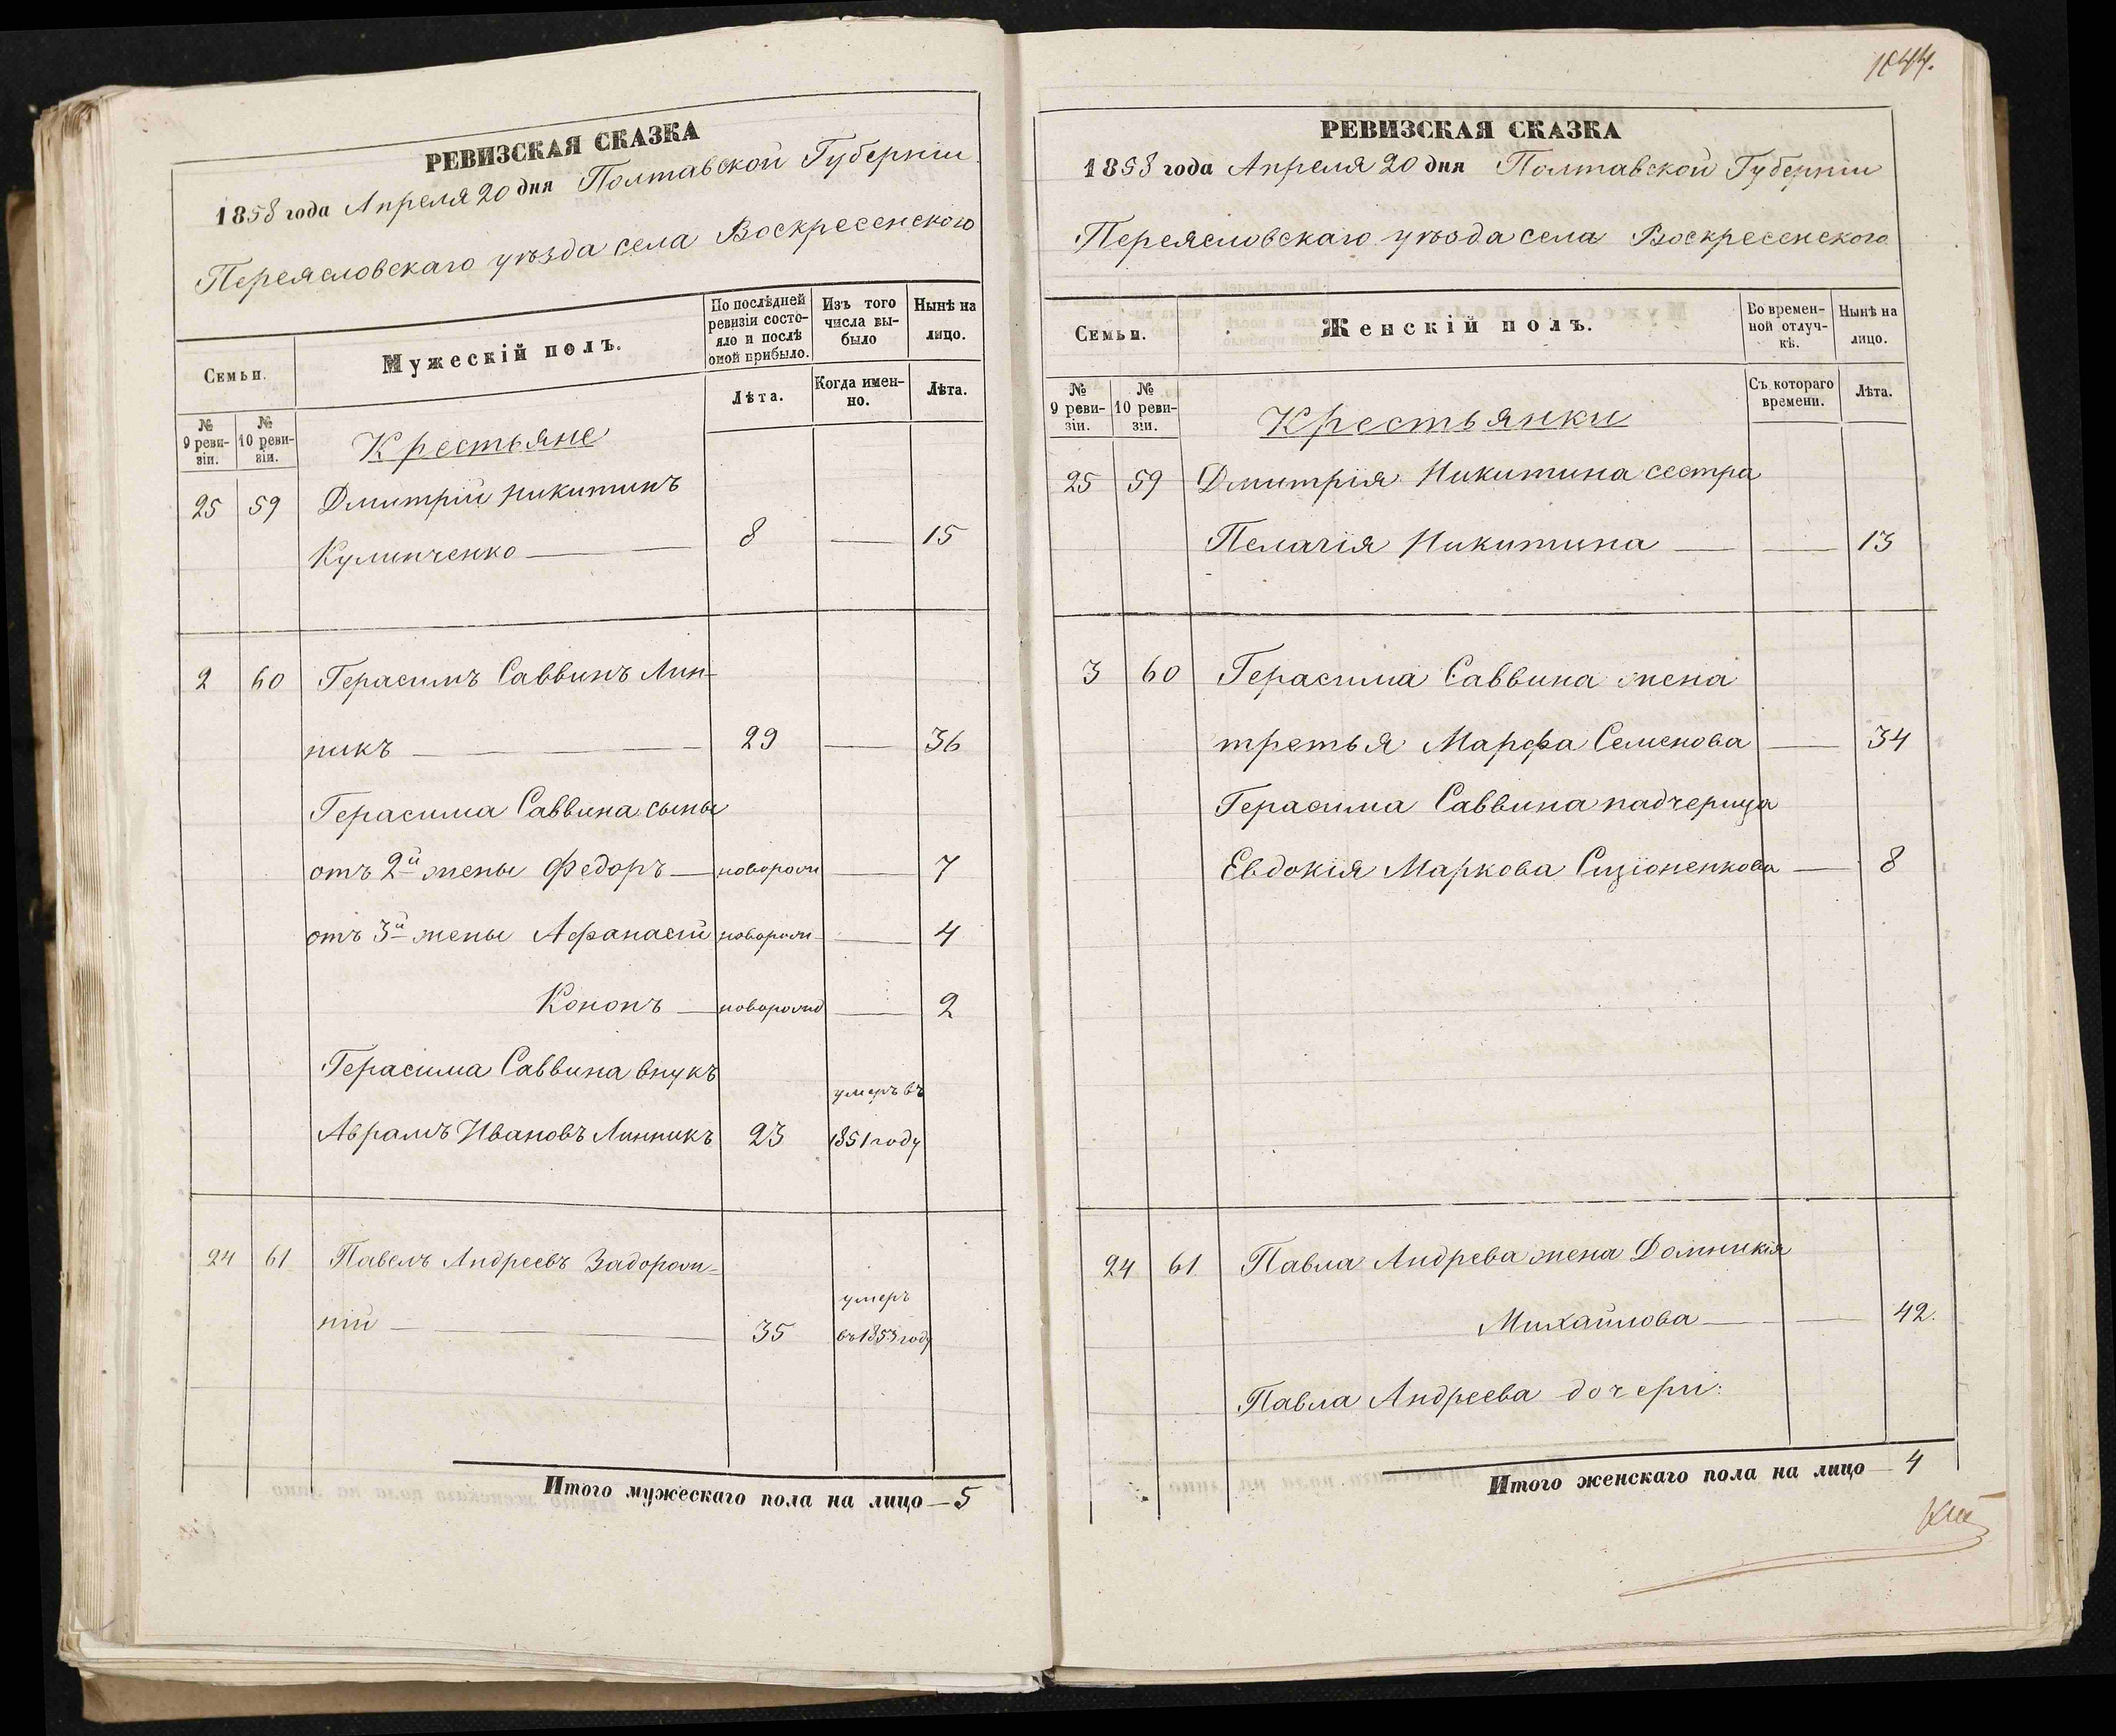 РЕВИЗСКАЯ СКАЗКА
1858 года Апреля 20 дня Полтавской Губерніи
Переясловскаго уѣзда села Воскресенского
Семьи.
Мужескій полъ.
По послѣдней ревизіи состояло и послѣ оной прибыло.
Изъ того числа выбыло
Нынѣ на лицо.
№ 9 ревизіи.
№ 10 ревизіи.
Лѣта.
Когда именно.
Лѣта.
Крестьяне
25 59 Дмитрій Никитинъ
Кулинченко — 8 — 15
2 60 Герасимъ Саввинъ Лин-
никъ — 29 — 36
Герасима Саввина сыны
отъ 2й жены Федоръ —новорож — 7
отъ 3й жены Афанасій норорож — 4
Кононъ — новорожд — 2
Герасима Саввина внукъ
умеръ въ
Аврамъ Ивановъ Линникъ 23 1851 году
24 61 Павелъ Андреевъ Задорож-
умеръ
ній — 35 въ 1853 году
Итого мужескаго пола на лицо — 5
1044.
РЕВИЗСКАЯ СКАЗКА
1858 года Апреля 20 дня Полтавской Губерніи
Переясловскаго уѣзда села Воскресенского
Семьи.
Женскій полъ.
Во временной отлучкѣ.
Нынѣ на лицо.
№ 9 ревизіи.
№ 10 ревизіи.
Съ котораго времени.
Лѣта.
Крестьянки
25 59 Дмитрія Никитина сестра
Пелагія Никитина — — 13
3 60 Герасима Саввина жена
третья Марфа Семенова — 34
Герасима Саввина падчерица
Евдокія Маркова — 8
24 61 Павла Андрева жена Домникія
Михайлова — — 42.
Павла Андреева дочери:
Итого женскаго пола на лицо — 4